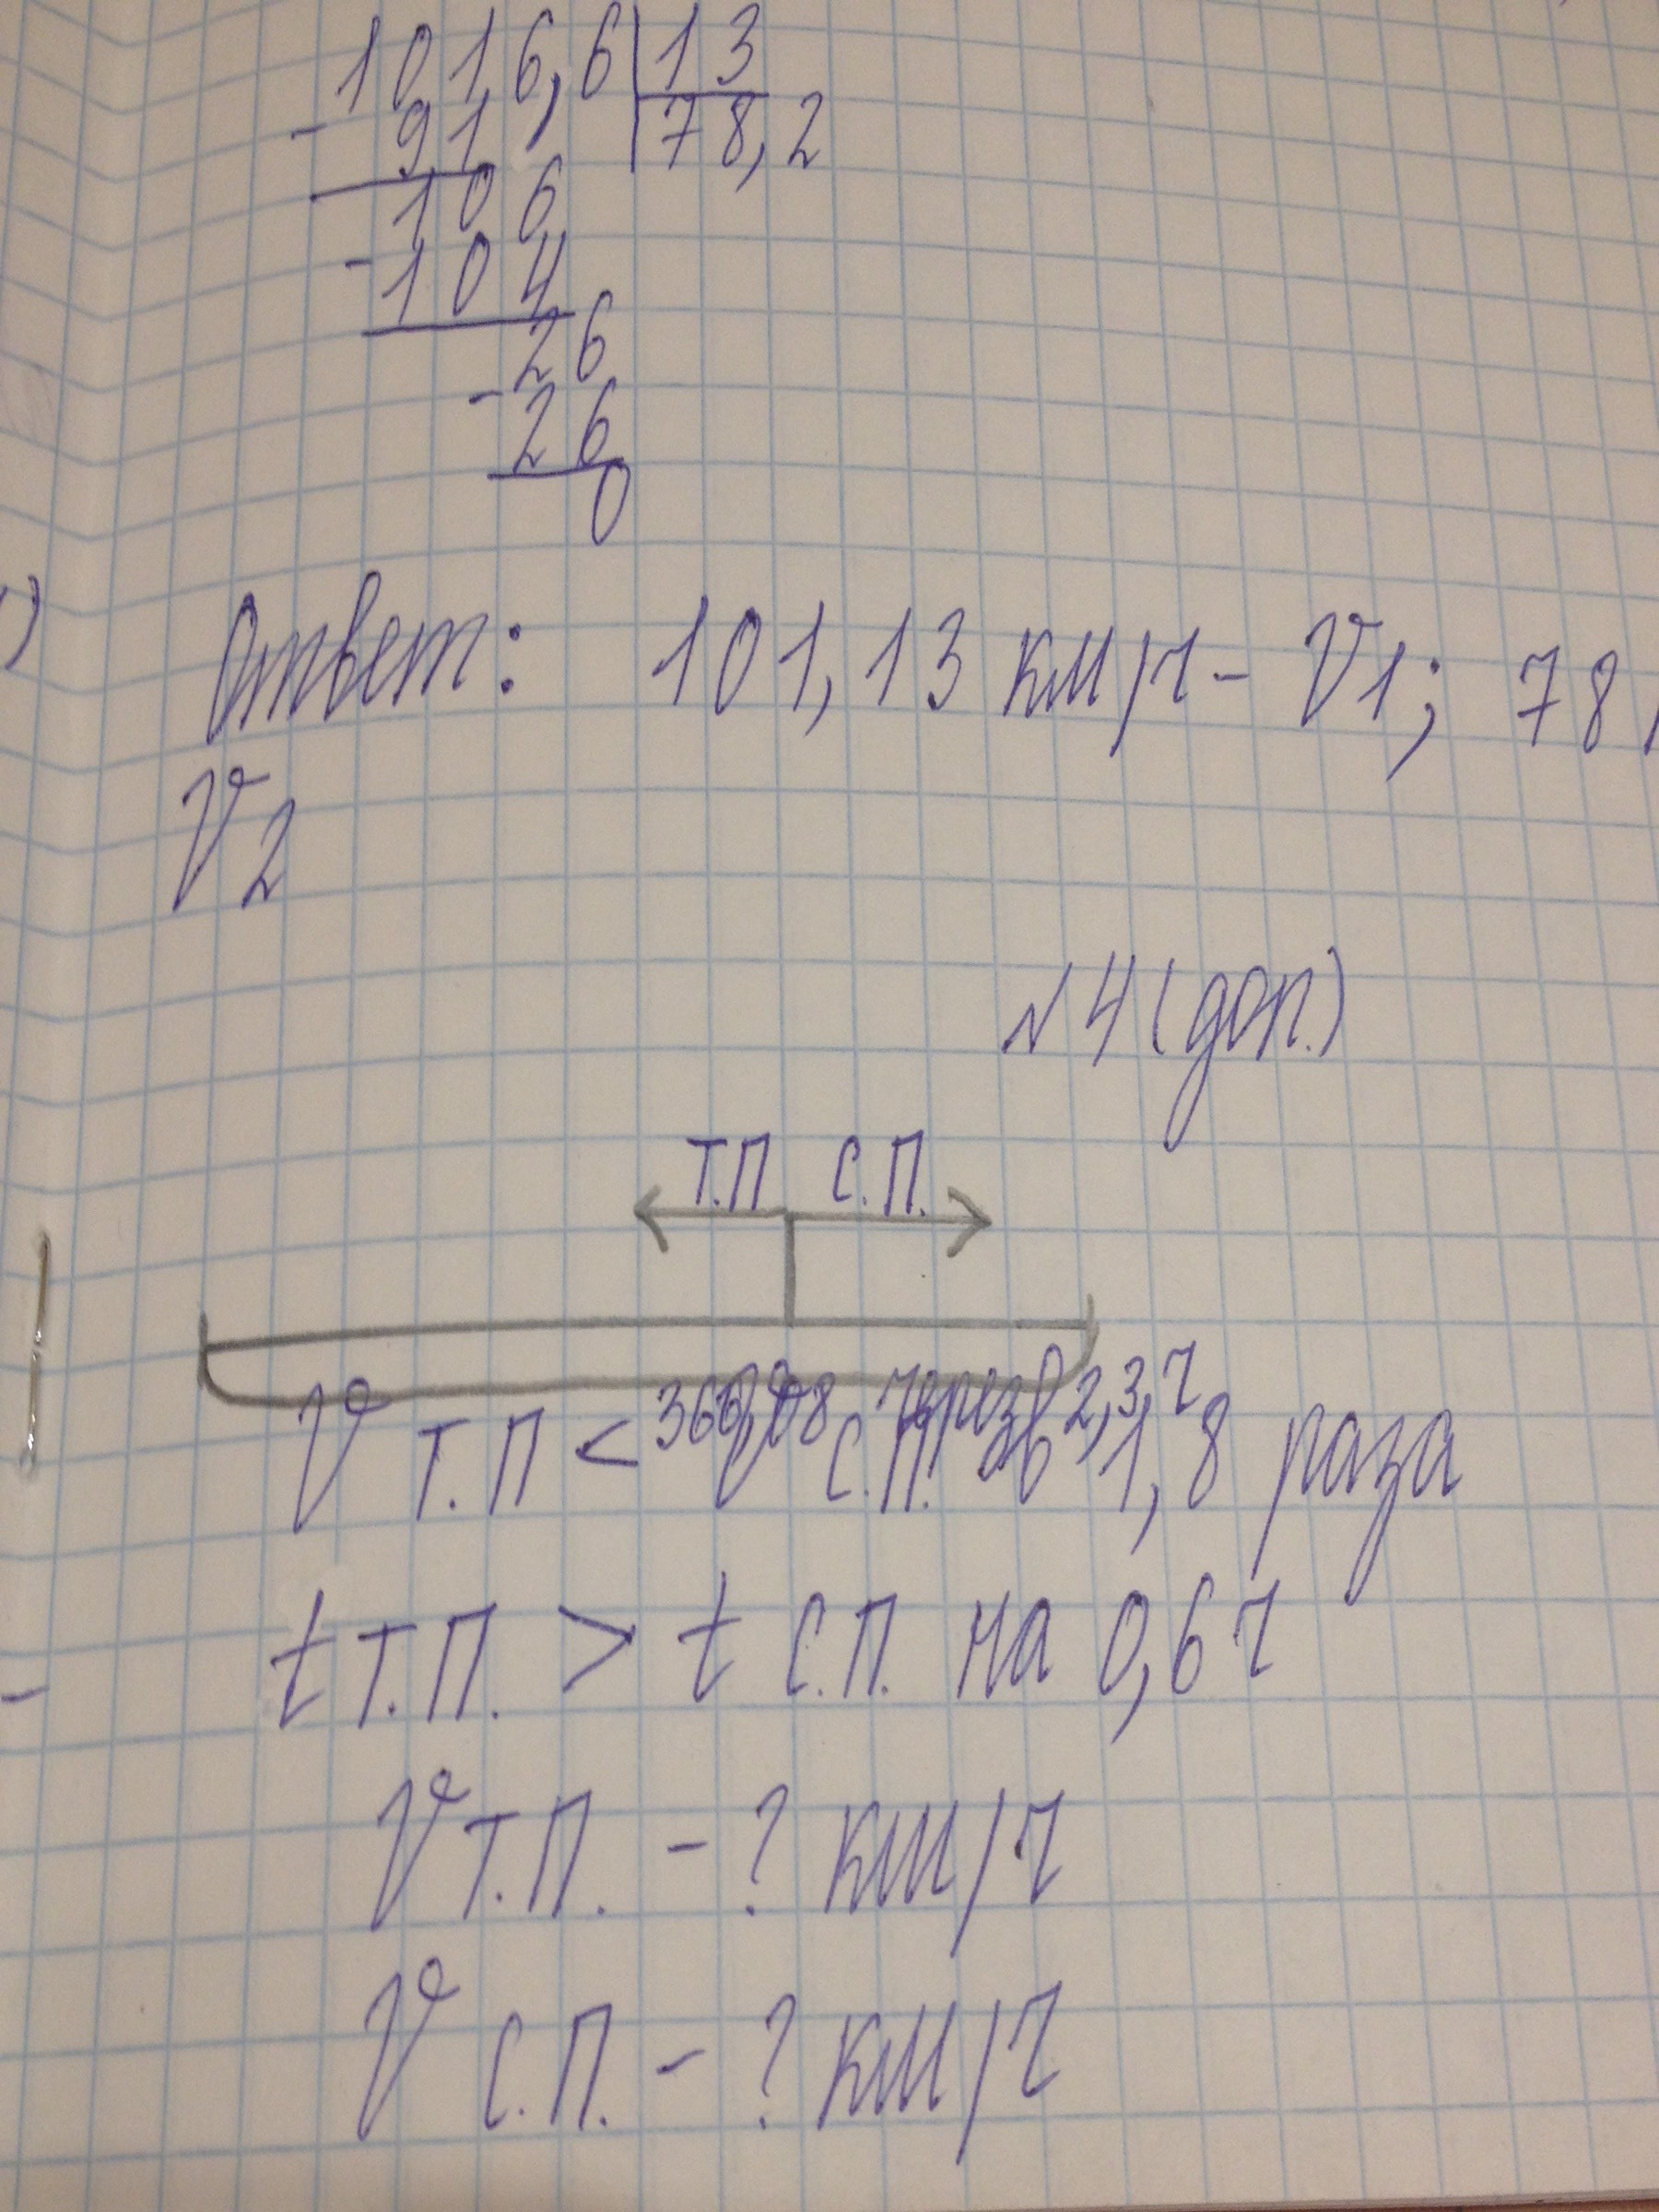 - 1016,6 | 13
91 78,2
106
- 104
26
- 26
0
Ответ: 101,13 км/ч - V1; 78,
V2
№4 (доп.)
Т.П С.П.
через 2,3 ч
V Т.П < V С.П. в 1,8 раза
t Т.П. > t С.П. на 0,6 ч
V Т.П. - ? км/ч
V С.П. - ? км/ч